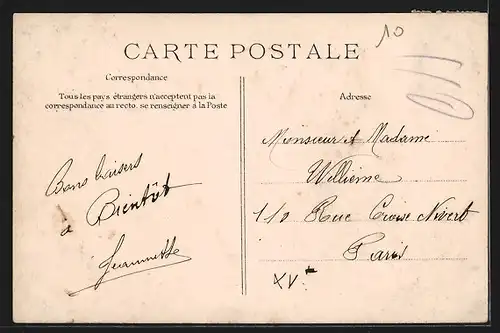 10
CARTE POSTALE
Correspondance
Tous les pays étrangers n'acceptent pas la
correspondance au recto. se renseigner à la Poste
Adresse
Bons baisers
à Bientôt
Jeannette
Monsieur et Madame
Willième
110 Rue Croix Nivert
Paris
XVe